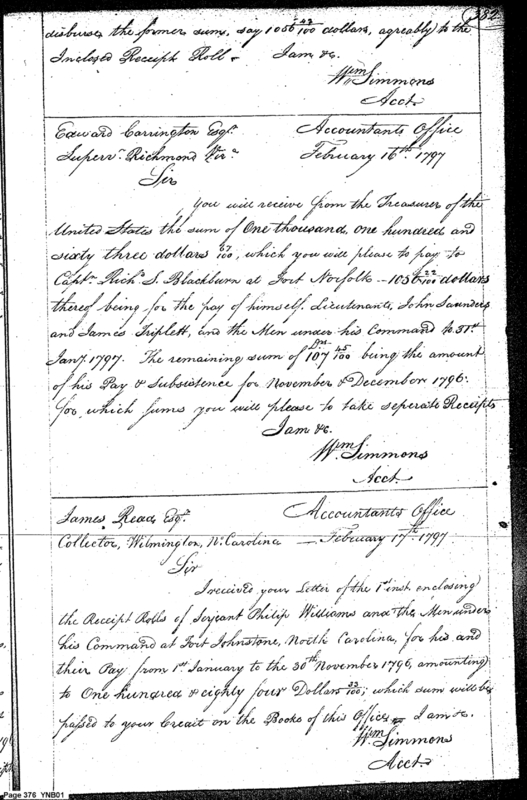 382
disburse the former sum, say 1056 22/100 dollars, agreably to the
Inclosed Receipt Roll - I am &c.
Wm Simmons
Acct.
Edward Carrington Esqr. Accountants Office
Supervr. Richmond Vira. February 16th 1797
Sir
You will receive from the Treasurer of the
United States the sum of One thousand, one hundred and
sixty three dollars 67/100, which you will please to pay to
Captn. Richd. S. Blackburn at Fort Norfolk - 1056 22/100 dollars
thereof being for the pay of himself, Lieutenants, John Saunders
and James Triplett, and the Men under his Command to 31st
Jany. 1797. The remaining sum of 107 45/100 being the amount
of his Pay & Subsistence for November & December 1796.
for which sums you will please to take seperate Receipts
I am &c.
Wm. Simmons
Acct.
James Read, Esqr. Accountants Office
Collector, Wilmington, No. Carolina - February 17th. 1797
Sir
I received your Letter of the 1st inst enclosing
the Receipt Rolls of Serjeant Philip Williams and the Men under
his Command at Fort Johnstone, North Carolina, for his and
their Pay from 1st January to the 30th November 1796, amounting
to One hundred & eighty four Dollars 23/100; which sum will be
passed to your Credit on the Books of this Office = I am &c.
Wm Simmons
Acct.
Page 376 YNB01